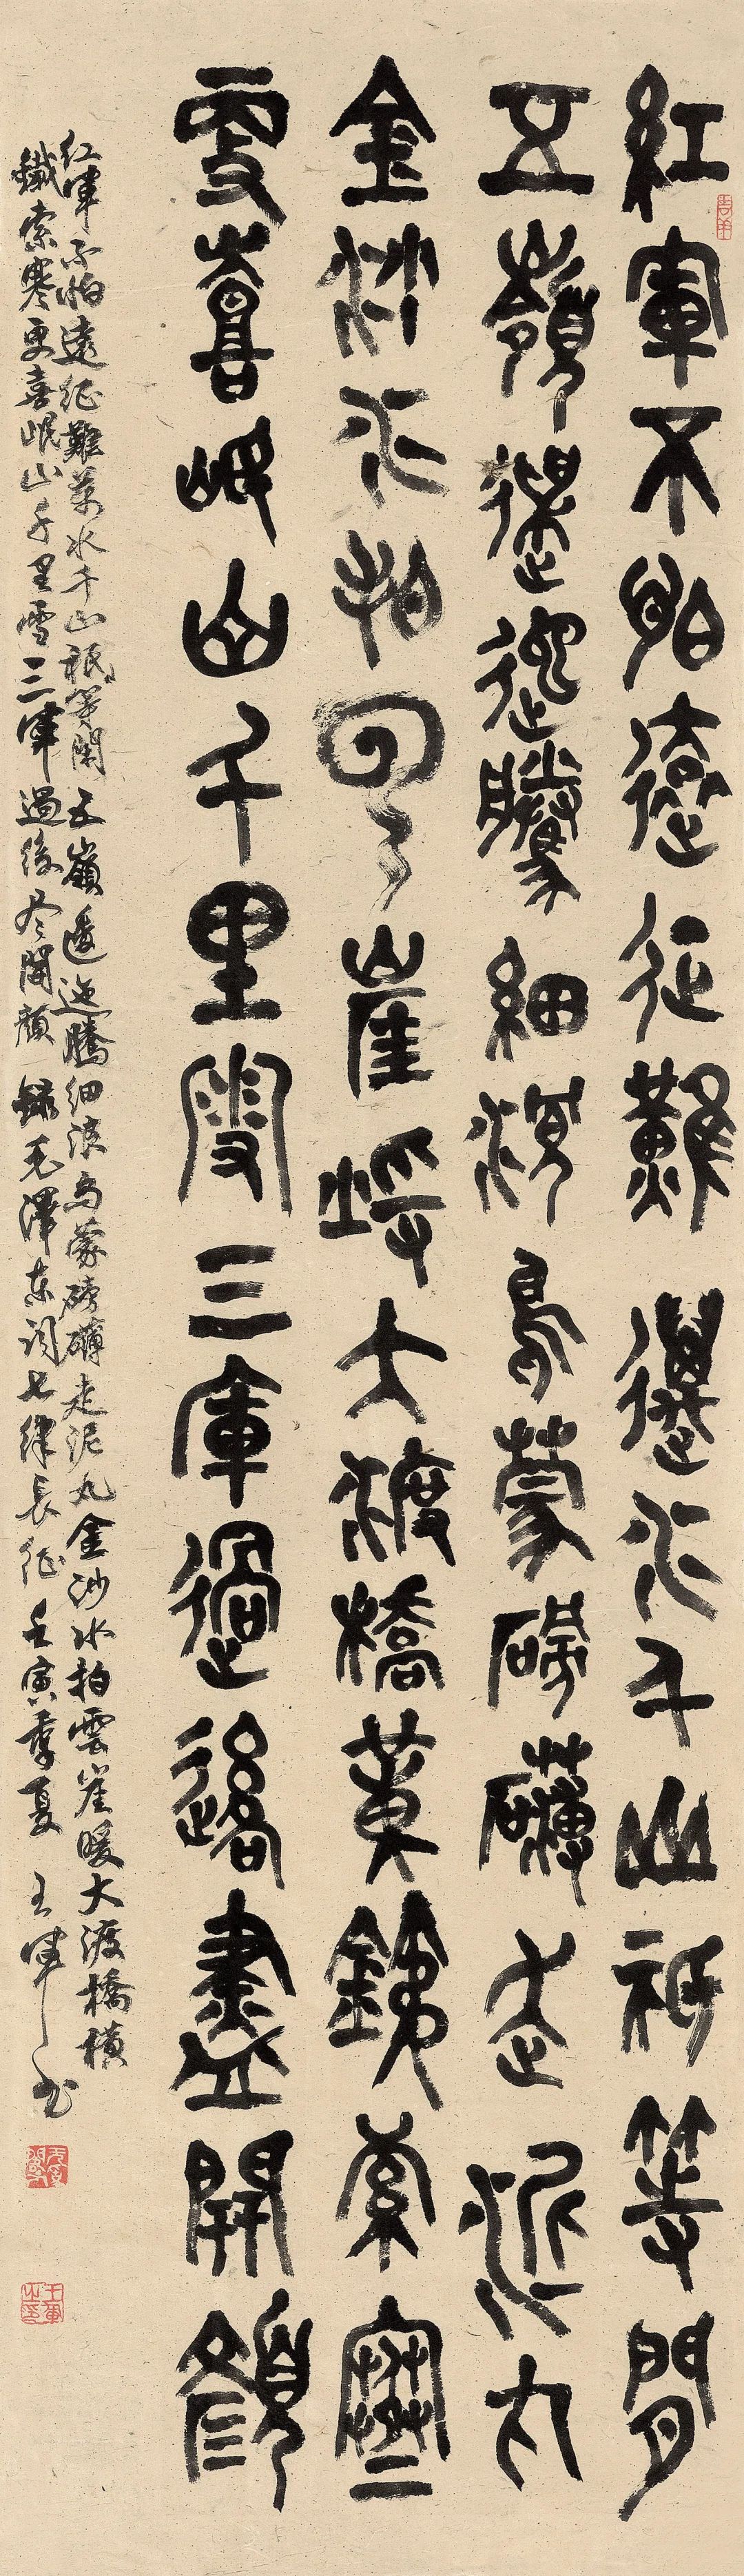 紅軍不怕遠征難萬水千山祇等閒
五嶺逶迤騰細浪烏蒙磅礴走泥丸
金沙水拍雲崖暖大渡橋橫鐵索寒
更喜岷山千里雪三軍過後盡開顏
红軍不怕遠征難萬水千山祇等閑五嶺逶迤騰细浪烏蒙磅礴走泥丸金沙水拍雲崖暖大渡橋橫
鐵索寒更喜岷山千里雪三軍過後尽開顏 錄毛澤东詞七律長征 壬寅季夏 王軍书
王軍之印